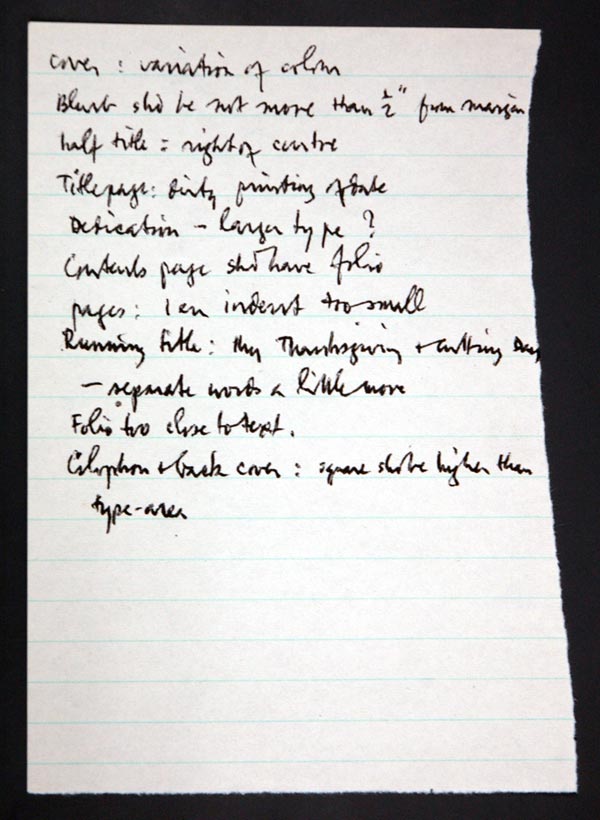 Cover : variation of colour
Blurb shd be not more than ½" from margin
half title : right of centre
Title page : dirty printing of date
Dedication – larger type ?
Contents page shd have folio
pages : 1 em indent too small
Running title : Thanksgiving + Cutting Days
– separate words a little more
Folio too close to text.
Colophon + back cover : square shd be higher than
type-area